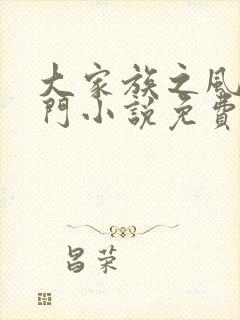 大家族之風
門小說免費
昌荣